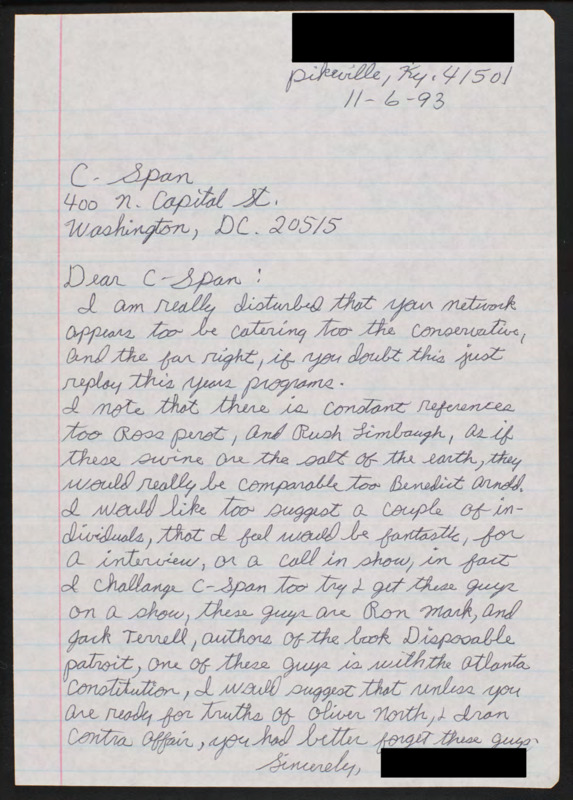 Pikeville, Ky. 41501
11-6-93
C-Span
400 N. Capital St.
Washington, DC. 20515
Dear C-Span:
I am really disturbed that your network
appears too be catering too the conservative,
and the far right, if you doubt this just
replay this years programs.
I note that there is constant references
too Ross perot, and Rush Limbaugh, as if
these swine are the salt of the earth, they
would really be comparable too Benedict Arnold.
I would like too suggest a couple of in-
dividuals, that I feel would be fantastic, for
a interview, or a call in show, in fact
I challange C-Span too try & get these guys
on a show, these guys are Ron Mark, and
Jack Terrell, authors of the book Disposable
patroit, one of these guys is with the atlanta
Constitution, I would suggest that unless you
are ready for truths of Oliver North, & Iran
Contra affair, you had better forget these guys
Sincerely,